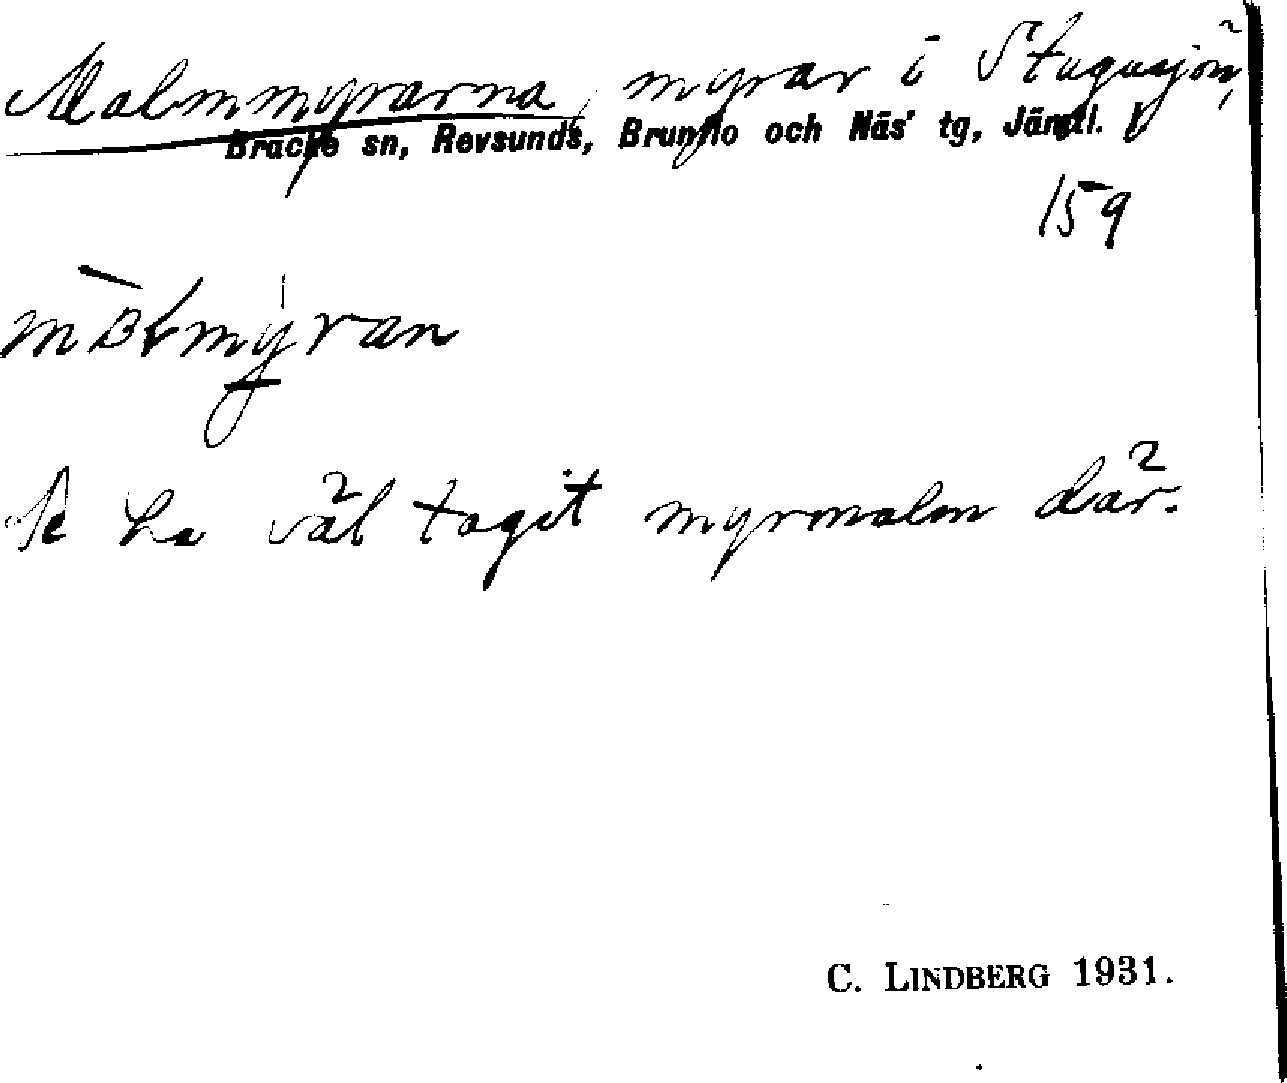 Malmmyrarna, myrar i Stugusjön,
Bräcke sn, Revsunds, Brunflo och Näs' tg, Jämtl.
159
De ha väl tagit myrmalm där.
C. LINDBERG 1931.